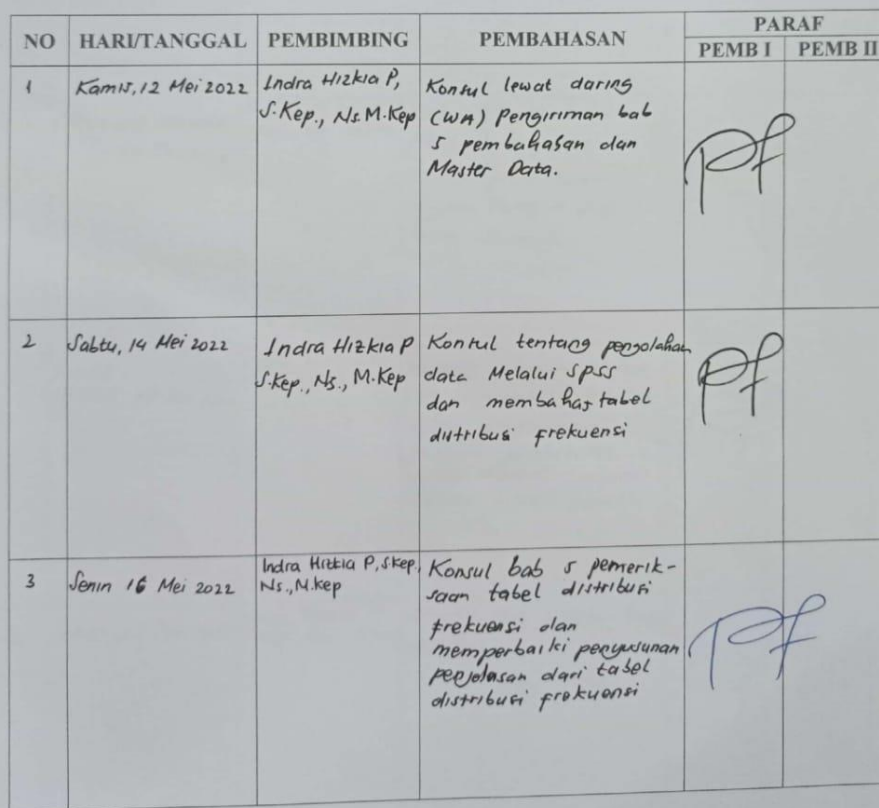 NO HARI/TANGGAL PEMBIMBING PEMBAHASAN PARAF
PEMB I PEMB II
1 Kamis, 12 Mei 2022 Indra Hizkia P, Konsul lewat daring
S.Kep., Ns. M.Kep (WA) Pengiriman bab
5 pembahasan dan
Master Data.
2 Sabtu, 14 Mei 2022 Indra Hizkia P Konsul tentang pengolahan
S.Kep., Ns., M.Kep data Melalui SPSS
dan membahas tabel
distribusi frekuensi
3 Senin 16 Mei 2022 Indra Hizkia P, S.Kep, Konsul bab 5 pemerik-
Ns., M.Kep saan tabel distribusi
frekuensi dan
memperbaiki penyusunan
penjelasan dari tabel
distribusi frekuensi